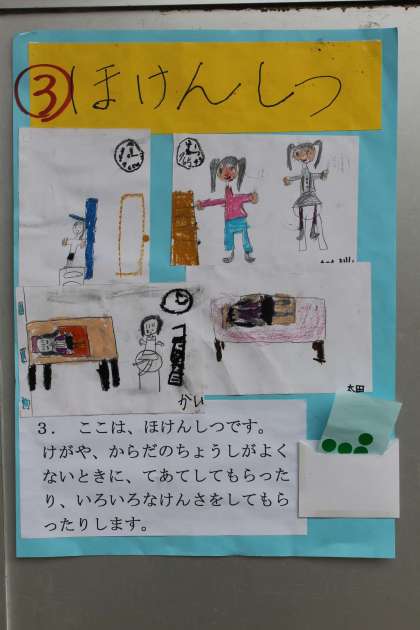 ③ほけんしつ
かい
太田
3． ここは、ほけんしつです。
けがや、からだのちょうしがよく
ないときに、てあてしてもらった
り、いろいろなけんさをしてもら
ったりします。